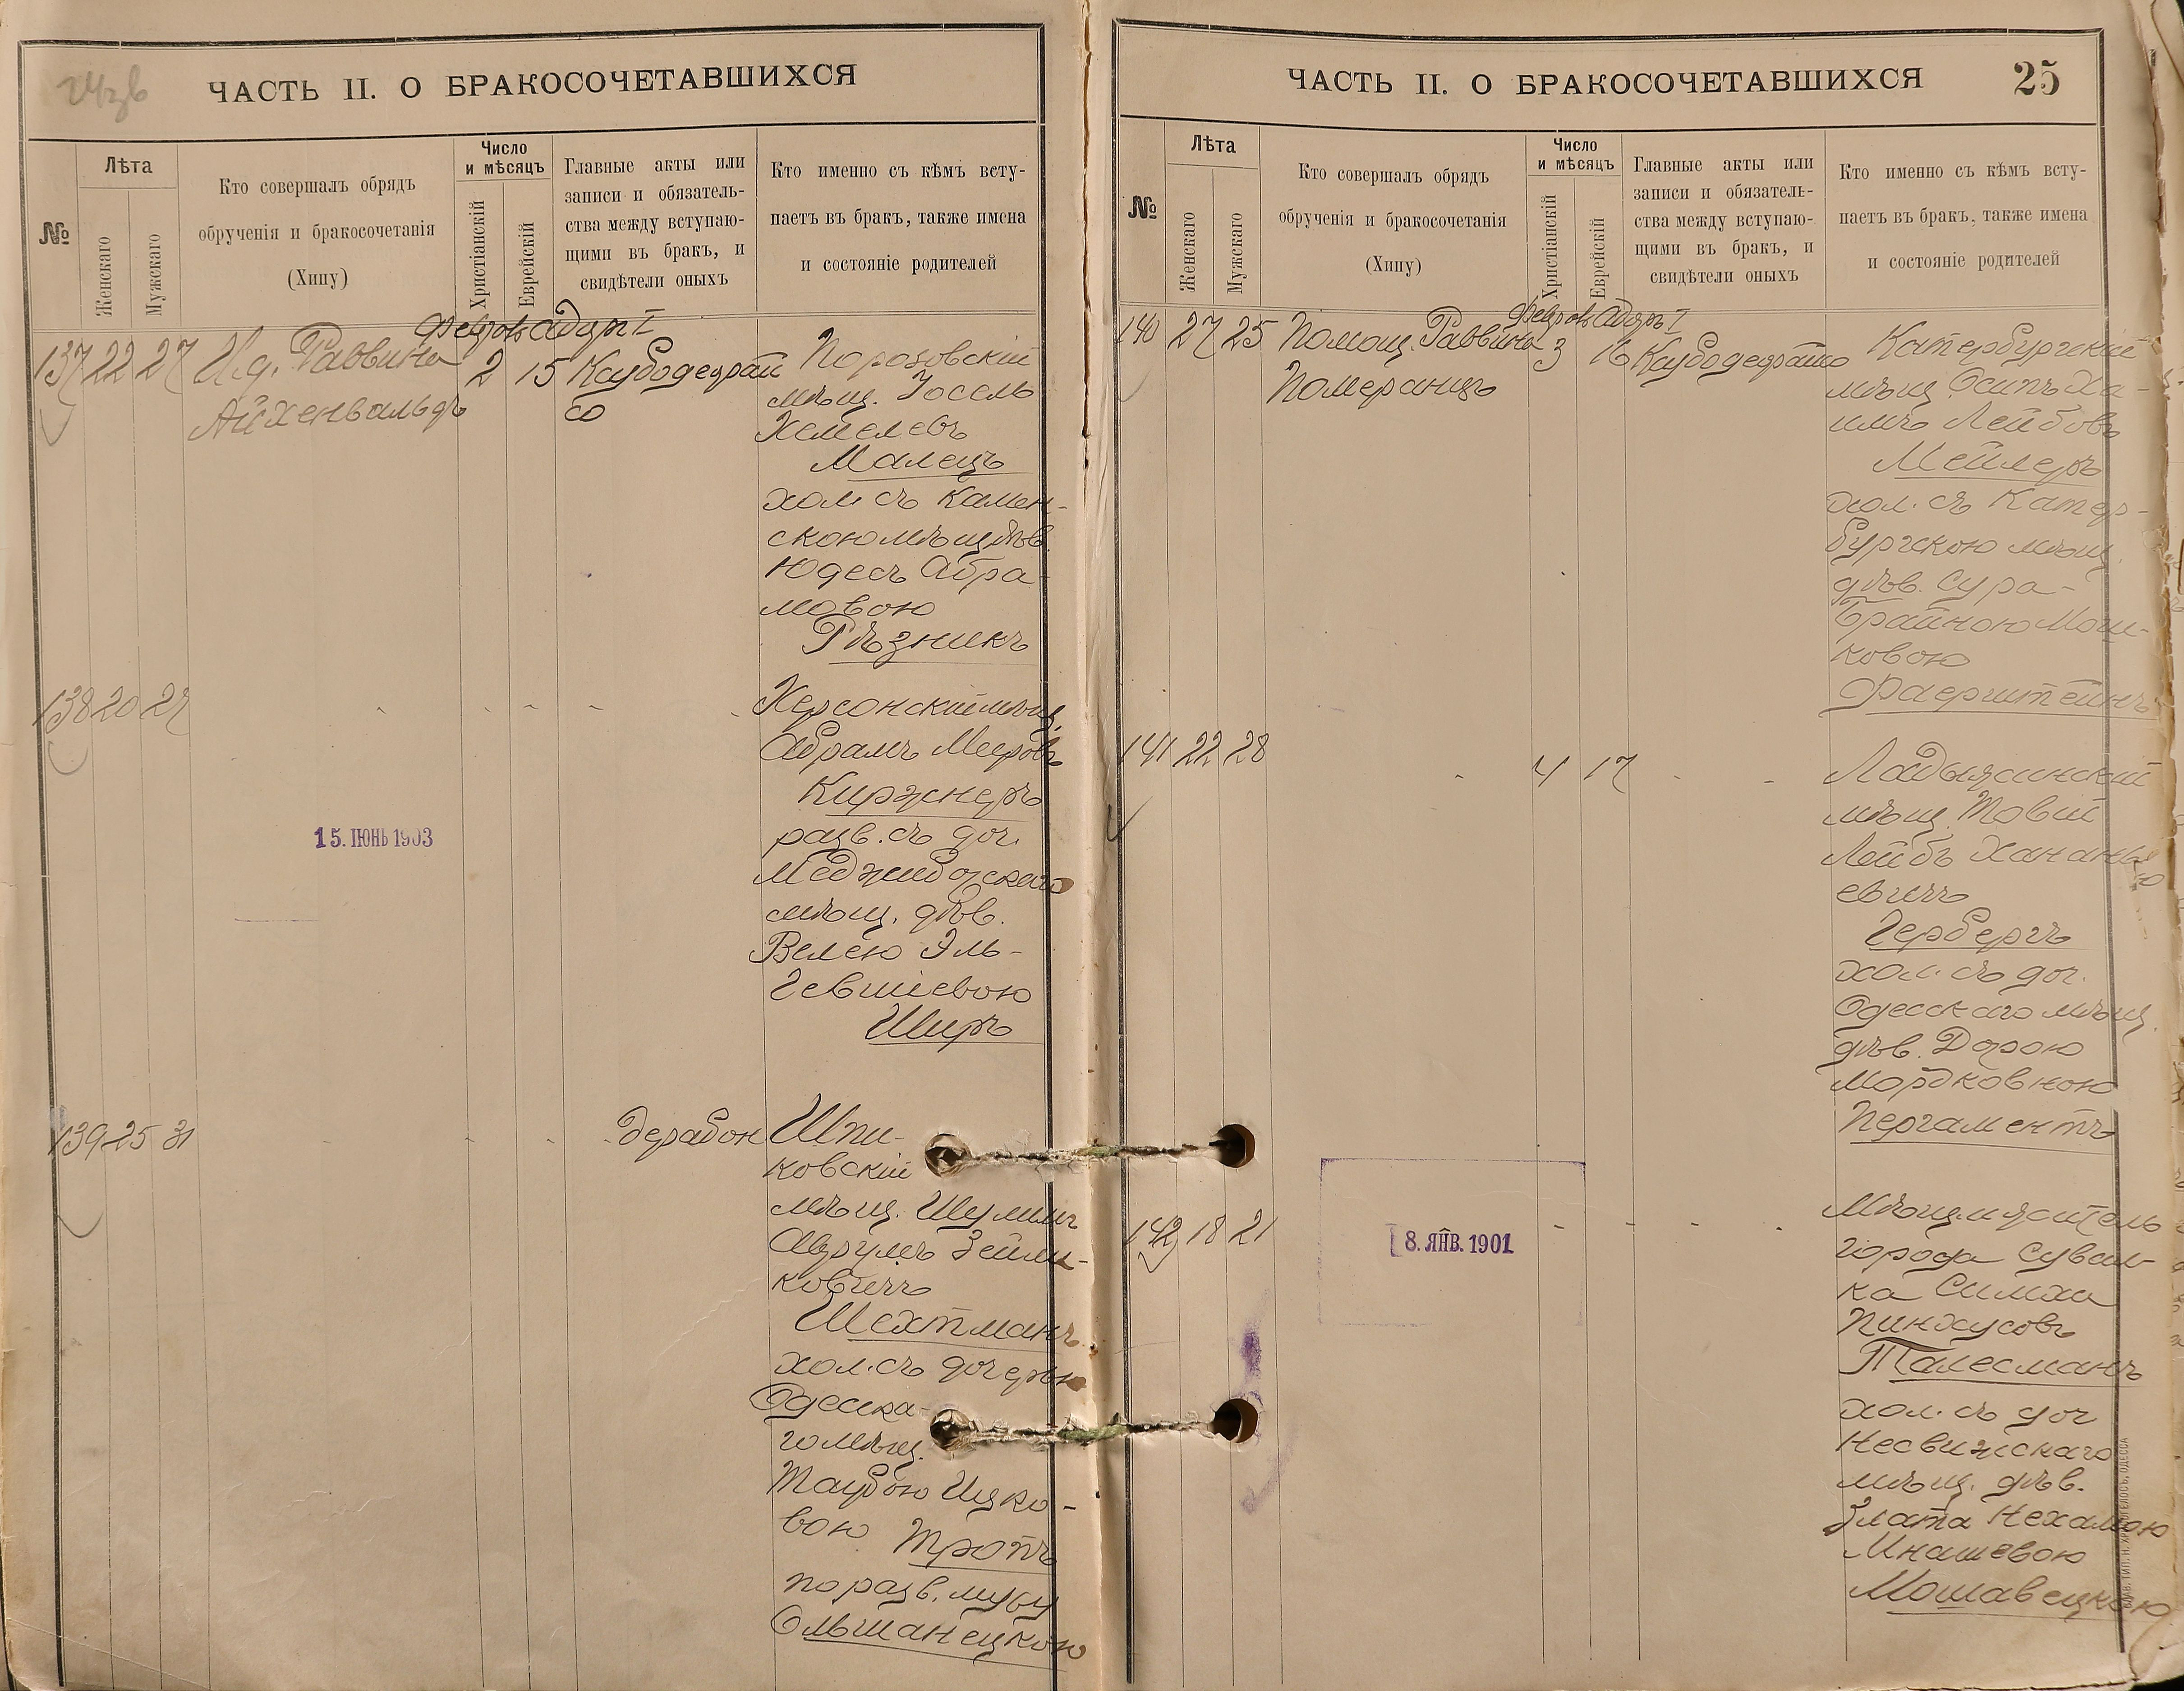 ЧАСТЬ II. О БРАКОСОЧЕТАВШИХСЯ
№
Лѣта
Женскаго
Мужскаго
Кто совершалъ обрядъ
обрученія и бракосочетанія
(Хипу)
Число
и мѣсяцъ
Христіанскій
Еврейскій
Главные акты или
записи и обязатель-
ства между вступаю-
щими въ бракъ, и
свидѣтели оныхъ
Кто именно съ кѣмъ всту-
паетъ въ бракъ, также имена
и состояніе родителей
Февраль Адаръ I
137 22 27 И.д. Раввина 2 15
Айхенвальдъ
Порозовскій
мѣщ. Іоссль
Хемелевъ
Малецъ
хол съ Камен-
скою мѣщ дѣв.
Юдесъ Абра-
мовою
Рѣзникъ
138 20 27
Херсонскій мѣщ.
Абрамъ Мееровъ
Киржнеръ
разв. съ доч.
Меджибожскаго
мѣщ. дѣв.
Велею Эль-
Ширъ
15. ІЮНЬ 1903
139 25 31
Шпи-
ковскій
мѣщ. Шулимъ
Аврумъ Зейли-
ковичъ
Шехтманъ
хол. съ дочерью
Одесска-
го мѣщ.
Таубою Ицко-
вою Тропъ
по разв. мужу
Ольшанецкою
ЧАСТЬ II. О БРАКОСОЧЕТАВШИХСЯ 25
№
Лѣта
Женскаго
Мужскаго
Кто совершалъ обрядъ
обрученія и бракосочетанія
(Хипу)
Число
и мѣсяцъ
Христіанскій
Еврейскій
Главные акты или
записи и обязатель-
ства между вступаю-
щими въ бракъ, и
свидѣтели оныхъ
Кто именно съ кѣмъ всту-
паетъ въ бракъ, также имена
и состояніе родителей
Февраль Адаръ I
140 27 25 Помощ. Раввина 3 16
Померанцъ
Катербургскій
мѣщ. Осипъ Ха-
имъ Лейбовъ
Мейлеръ
хол. съ Катер-
бургскою мѣщ.
дѣв. Сура-
Брайною Мош-
ковою
Фаерштейнъ
141 22 28 4 17
Ладыжинскій
мѣщ. Товій
Лейбъ Ханань
евичъ
Гербергъ
хол. съ доч.
Одесскаго мѣщ.
дѣв. Дорою
Мордковною
Пергаментъ
142 18 21
8. ЯНВ. 1901
Мѣщ. житель
города Сувал-
ка Симха
Пинхусовъ
Талесманъ
хол. съ доч
Несвижскаго
мѣщ. дѣв.
Злата Нехамою
Мнашевою
Мошавецкою